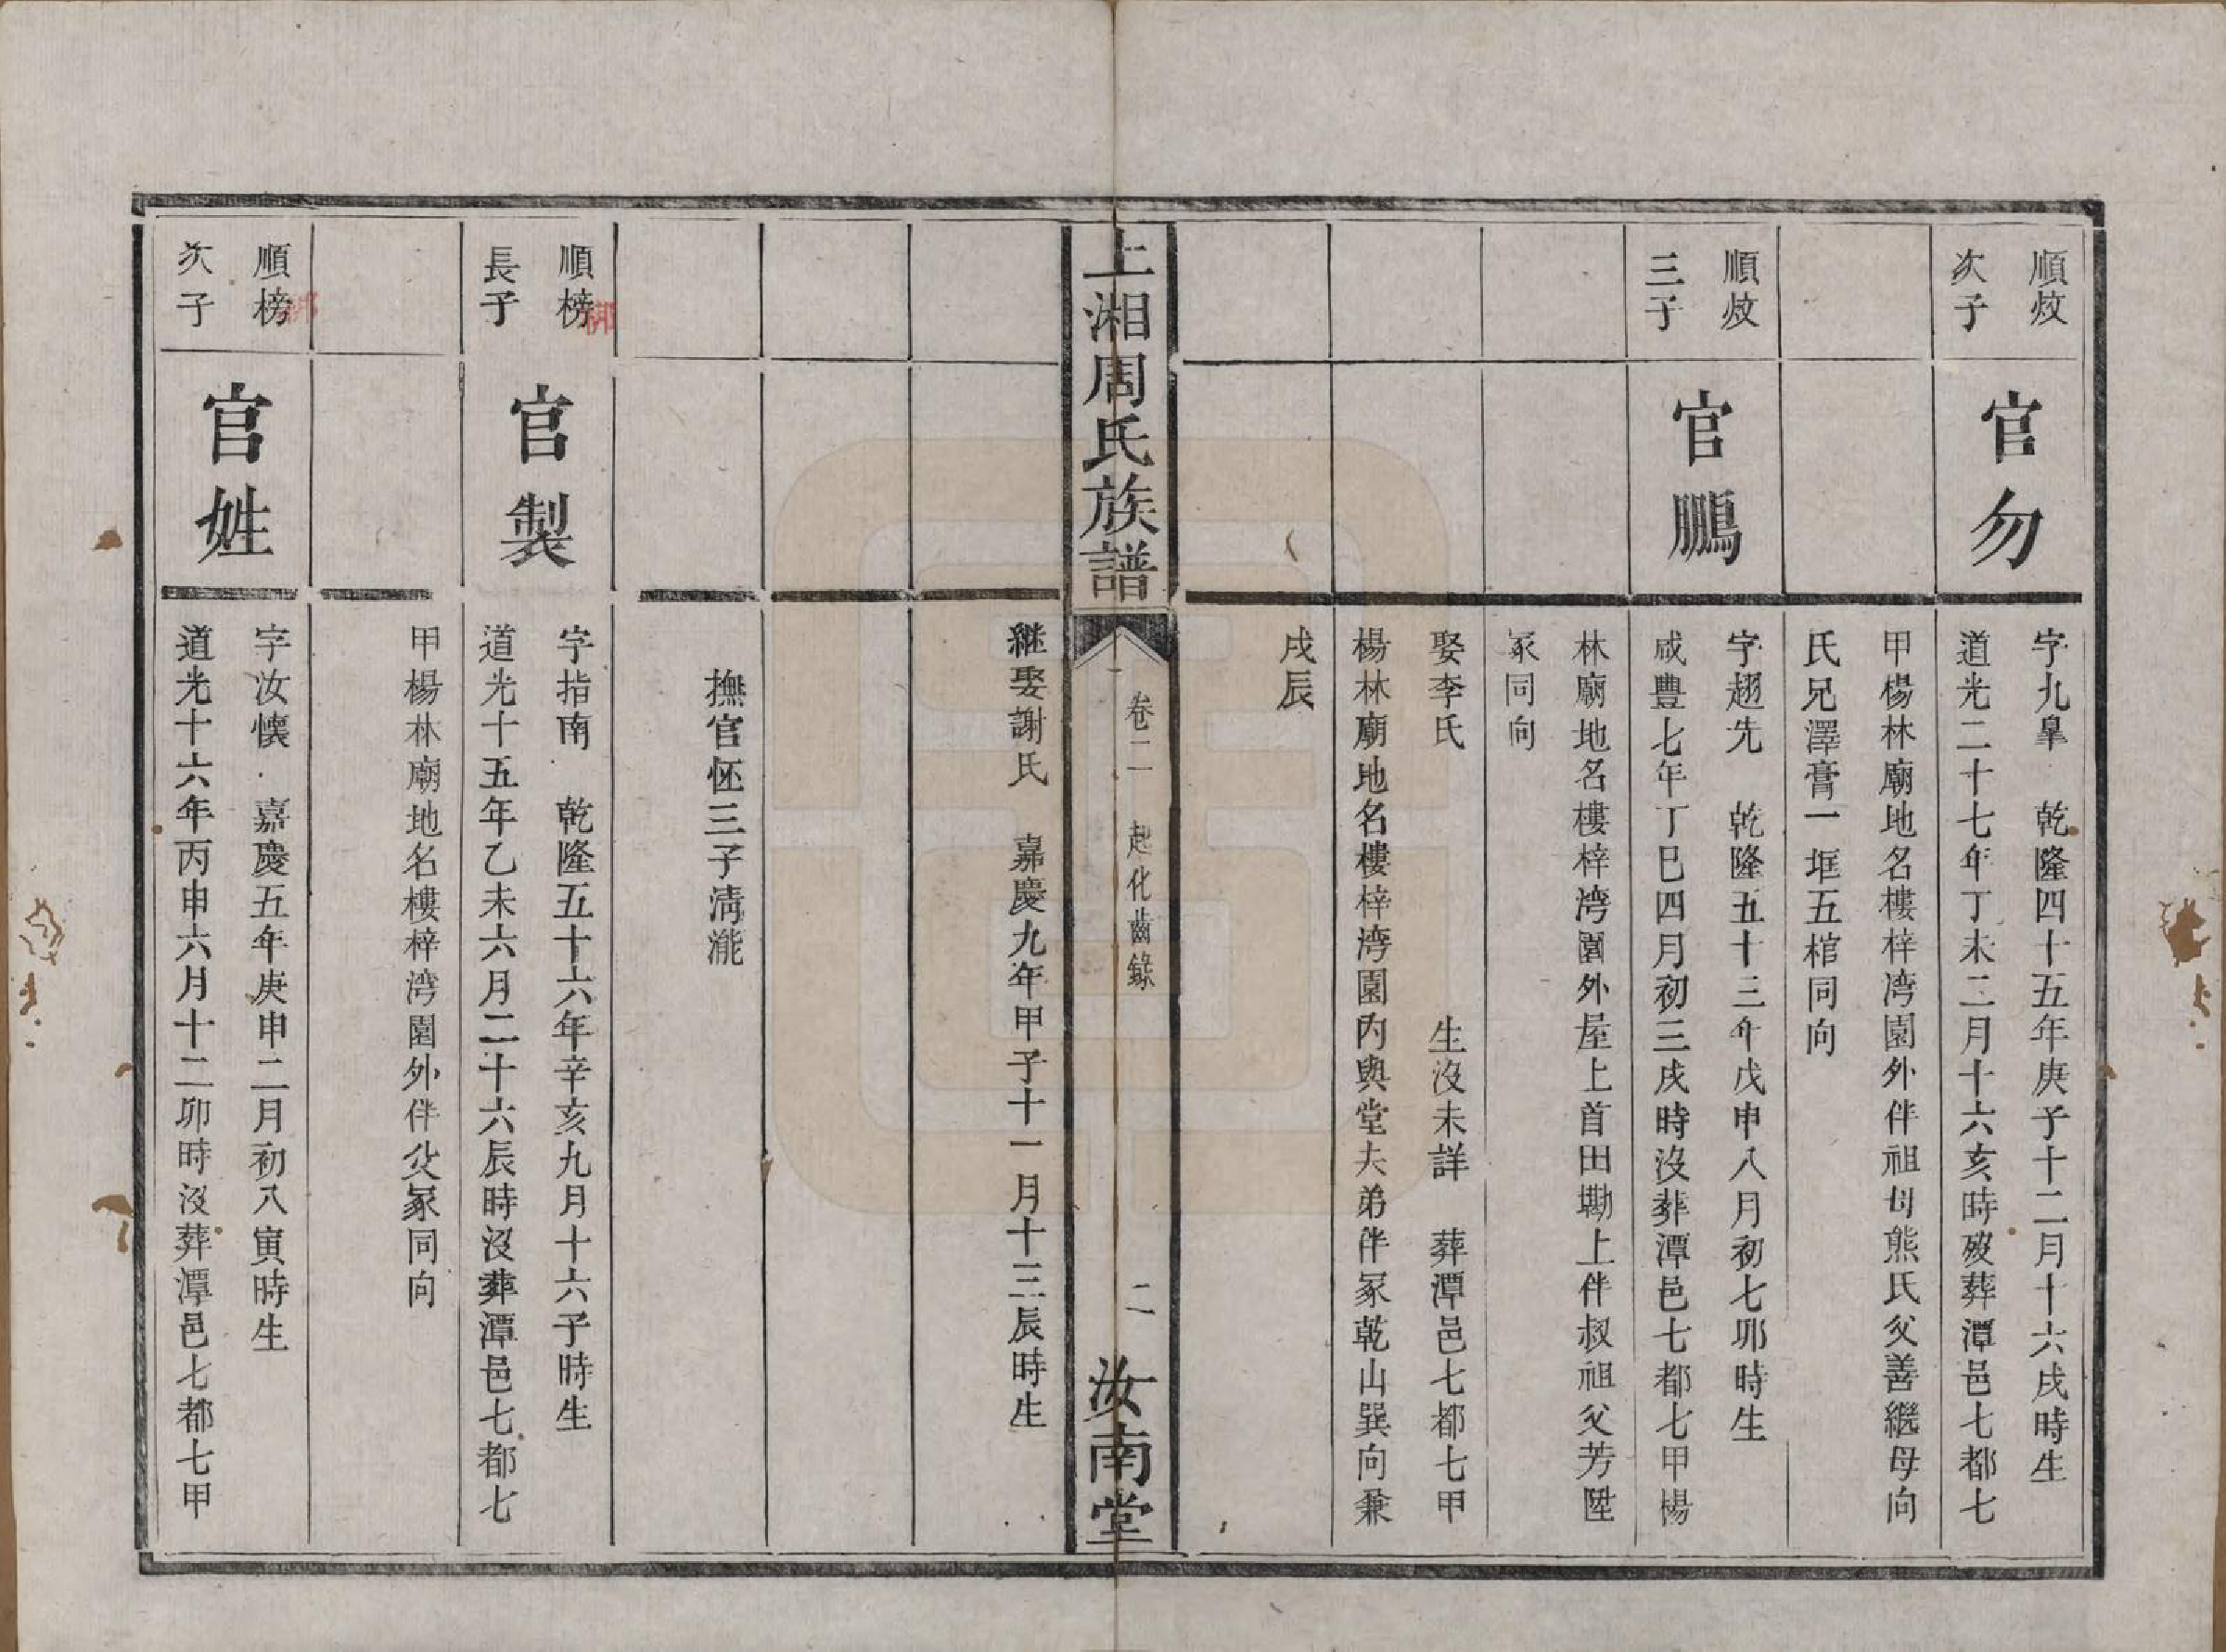 順炆
次子
官勿
字九臯　乾隆四十五年庚子十二月十六戌時生
道光二十七年丁未二月十六亥時歿葬潭邑七都七
甲楊林廟地名樓梓湾園外伴祖母熊氏父善繼母向
氏兄澤膏一坵五棺同向
順炆
三子
官鵬
字趨先　乾隆五十三年戊申八月初七卯時生
咸豐七年丁巳四月初三戌時沒葬潭邑七都七甲楊
林廟地名樓梓湾園外屋上首田墈上伴叔祖父芳陞
冢同向
娶李氏　生沒未詳　葬潭邑七都七甲
楊林廟地名樓梓湾園內與堂夫弟伴冢乾山巽向兼
戌辰
上湘周氏族譜
卷二　起化齒錄
二
汝南堂
継娶謝氏　嘉慶九年甲子十一月十三辰時生
撫官怌三子清瀧
順榜
長子
官製
字指南　乾隆五十六年辛亥九月十六子時生
道光十五年乙未六月二十六辰時沒葬潭邑七都七
甲楊林廟地名樓梓湾園外伴父冢同向
順榜
次子
官姓
字汝懷　嘉慶五年庚申二月初八寅時生
道光十六年丙申六月十二卯時沒葬潭邑七都七甲